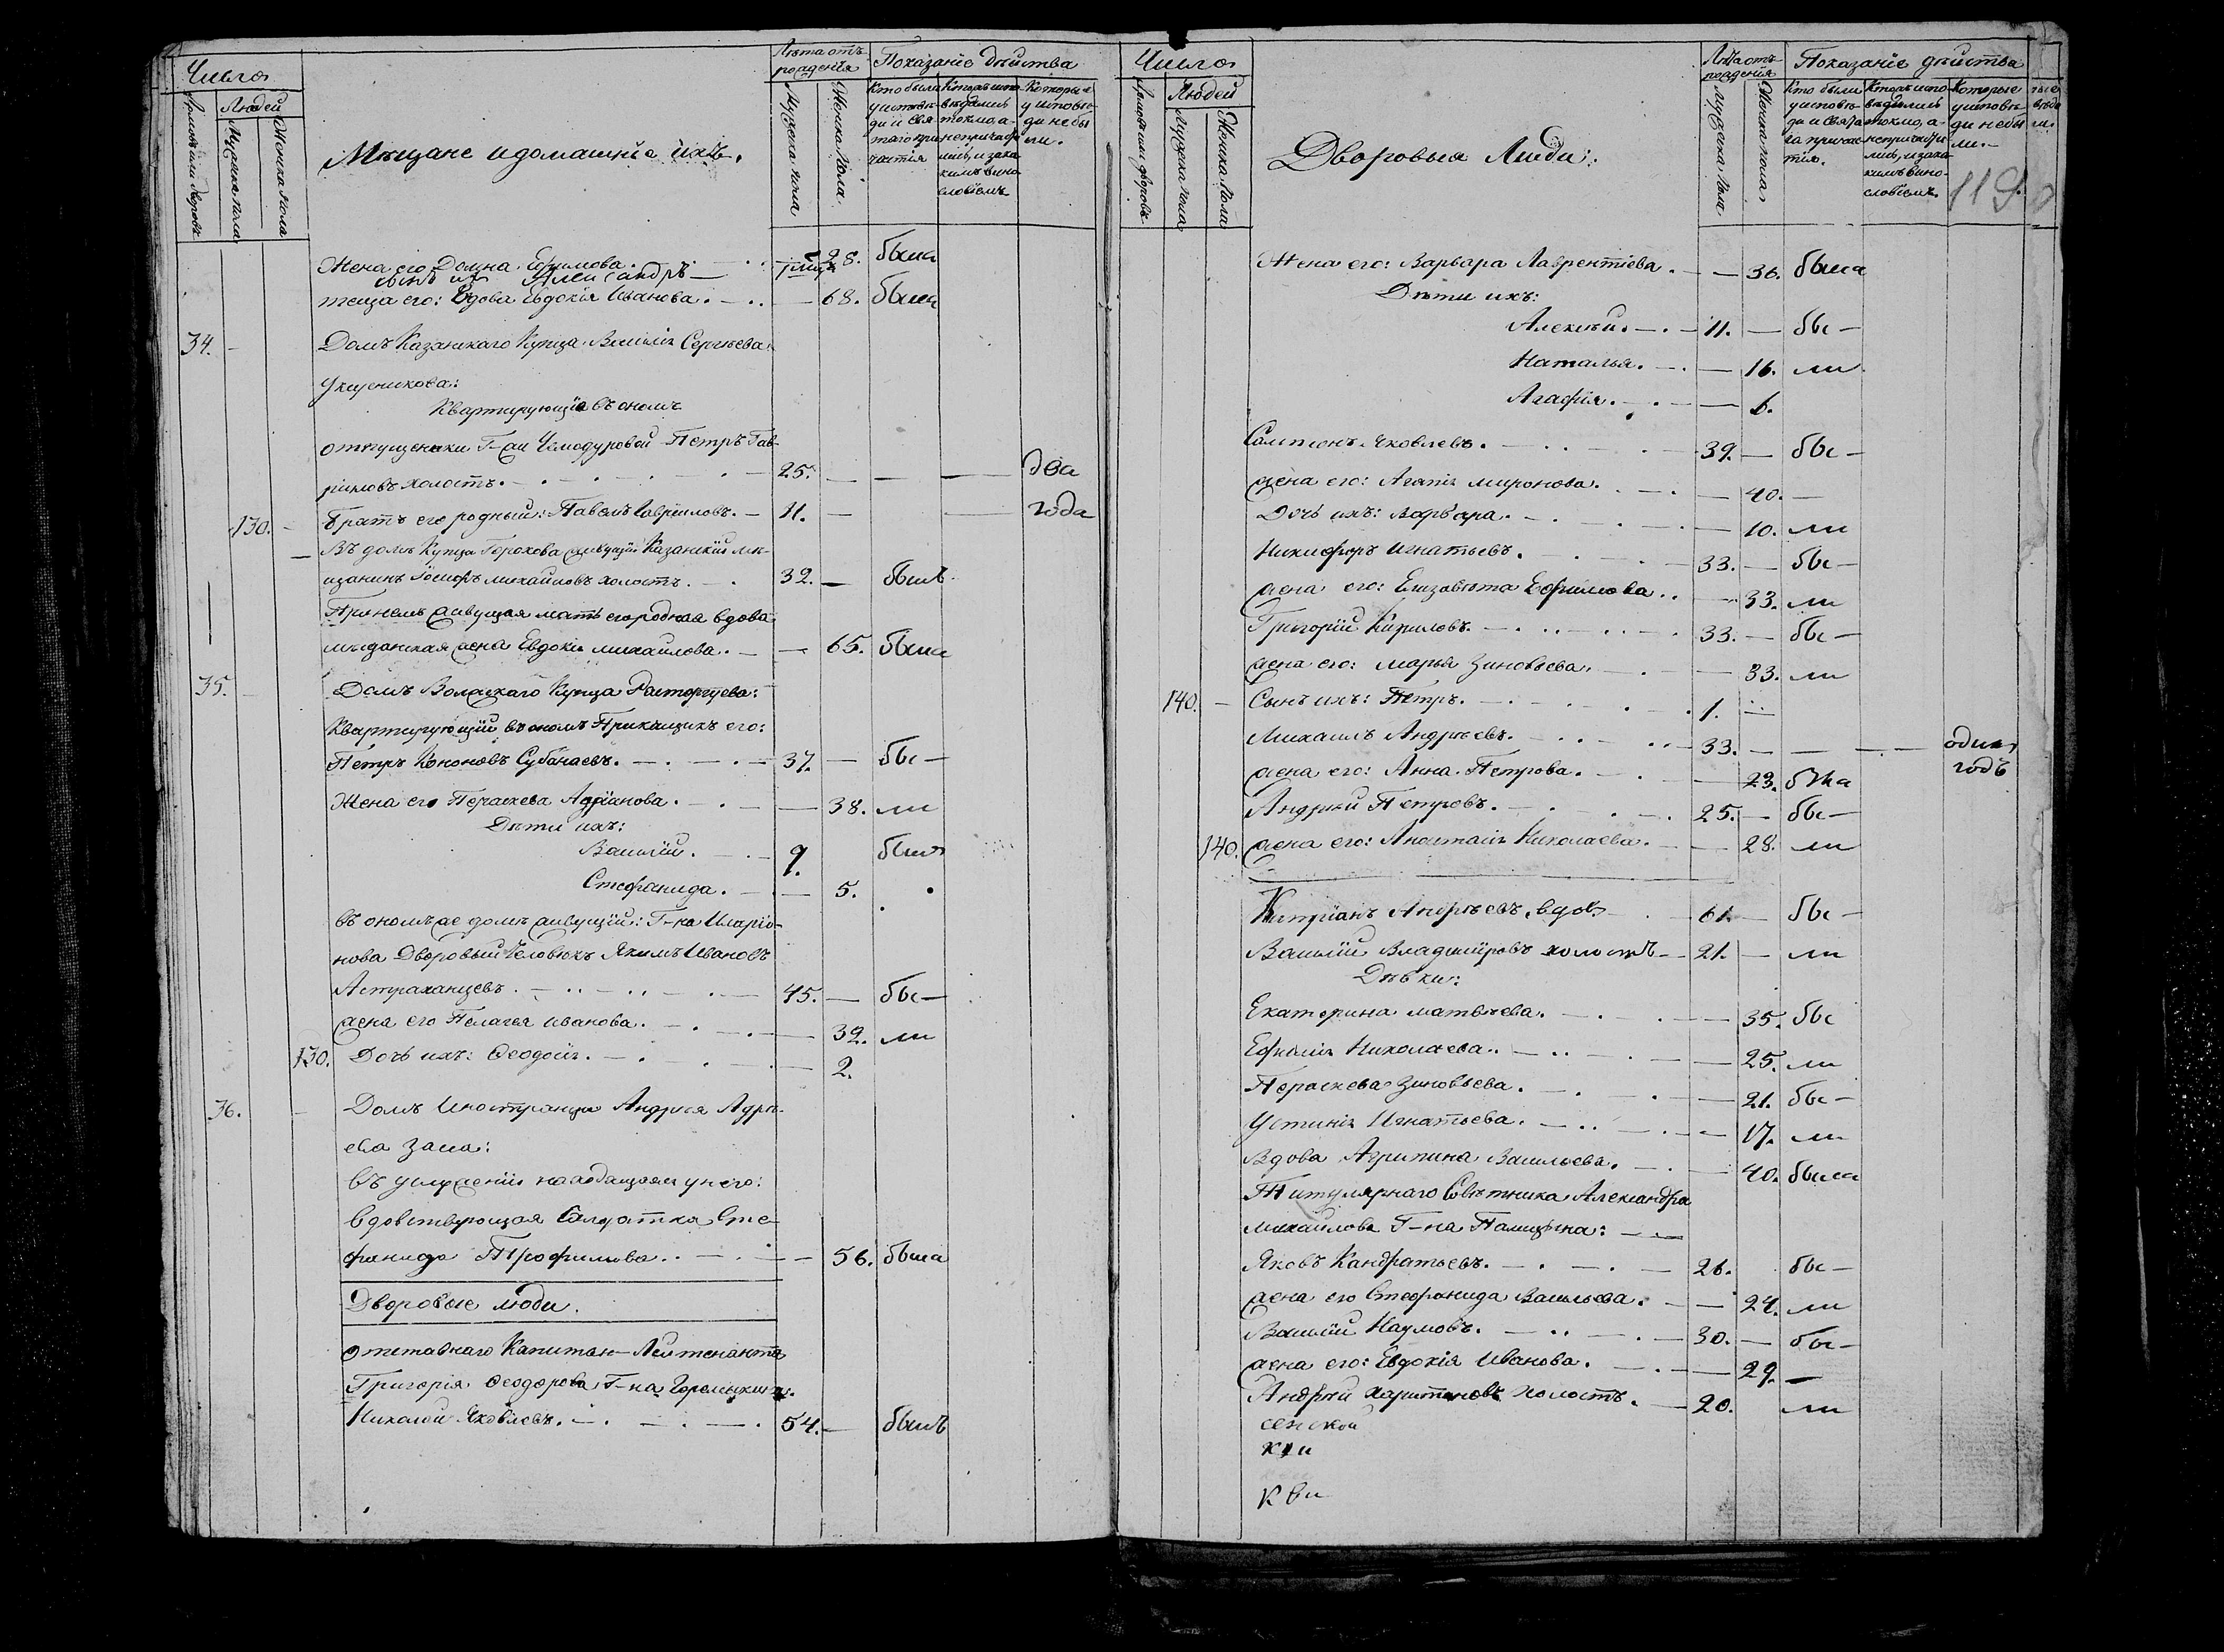 Число
Приходскихъ дворовъ
Людей
Мужеска пола
Женска пола
Мѣщане и домашніе ихъ.
Лѣта отъ рожденія
Мужеска пола
Женска пола
Показаніе дѣйства
Кто были у исповѣди и святаго причастія
Которые исповѣдались токмо, а не причастились, и за какимъ винословіемъ
Которые у исповѣди не были.
Жена его Домна Ефимова. 28. была
сынъ ихъ Александръ
теща его: Вдова Евдокія Иванова. — 68. была
34. Домъ Казанскаго Купца Василія Сергѣева
Квартирующіе въ ономъ
отпущенники Г-жи Чемодуровой Петръ Гав-
риловъ холостъ. 25. — — — два
130. Братъ его родный: Павелъ Гавриловъ. — 11. — — года
Въ домѣ Купца Горохова живущій Казанскій мѣ-
щанинъ Іосифъ Михайловъ холостъ. 32. — былъ
При немъ живущая мать его родная вдова
мѣщанская жена Евдокія Михайлова. — 65. была
35. Домъ Волжскаго Купца Расторгуева:
Квартирующій въ ономъ Прикащикъ его:
Петръ Кононовъ Субачаевъ. 37. — бы —
Жена его Параскева Адріанова. — 38. ли
Дѣти ихъ:
Василій. 9. былъ
Стефанида. — 5.
въ ономъ же домѣ живущій: Г-на Иларіо-
нова Дворовый Человѣкъ Якимъ Ивановъ
Астраханцевъ. 45. — бы —
жена его Пелагея Иванова. — 32. ли
130. Дочь ихъ: Ѳеодосія. — 2.
36. Домъ Иностранца Андрея Адре-
ева Заса:
въ услуженіи находящаяся у него:
вдовствующая Солдатка Сте-
фанида Трофимова. — 56. была
Дворовые люди.
отставнаго Капитан-Лейтенанта
Григорія Ѳеодорова Г-на
Николай Яковлевъ. 54. — былъ
Число
Приходскихъ дворовъ
Людей
Мужеска пола
Женска пола
Дворовыя Люди:
Лѣта отъ рожденія
Мужеска пола
Женска пола
Показаніе дѣйства
Кто были у исповѣди и Святаго причастія.
Которые исповѣдались токмо, а не причастились, и за какимъ винословіемъ.
Которые у исповѣди не были.
119
Жена его: Варвара Лаврентіева. — 36. была
Дѣти ихъ:
Алексѣй. 11. — бы —
Наталья. — 16. ли
Агафія. — 6.
Сампсонъ Яковлевъ. 39. — бы —
жена его: Агапія Миронова. — 40. —
Дочь ихъ: Варвара. — 10. ли
Никифоръ Игнатьевъ. 33. — бы —
жена его: Елизавета Ефимова. — 33. ли
Григорій Кириловъ. 33. — бы —
жена его: Марья Зиновьева. — 33. ли
140. Сынъ ихъ: Петръ. 1. —
Михаилъ Андреевъ. 33. — — — одинъ
годъ
жена его: Анна Петрова. — 23. была
Андрей Петровъ. 25. — бы —
140. жена его: Анастасія Николаева. — 28. ли
Кипріанъ Андреевъ, вдовъ 61. — бы —
Василій Владиміровъ холостъ 21. — ли
Дѣвки:
Екатерина Матвѣева. — 35. бы
Ефимія Николаева. — 25. ли
Параскева Зиновьева. — 21. бы —
Устинія Игнатьева. — 17. ли
Вдова Агрипина Васильева. — 40. была
Титулярнаго Совѣтника Александра
Михайлова Г-на Палицына: —
Яковъ Кандратьевъ. 26. бы —
жена его Стефанида Васильева. — 24. ли
Василій Наумовъ. 30. — бы —
жена его: Евдокія Иванова. — 29. —
Андрей Харитоновъ холостъ. 20. ли